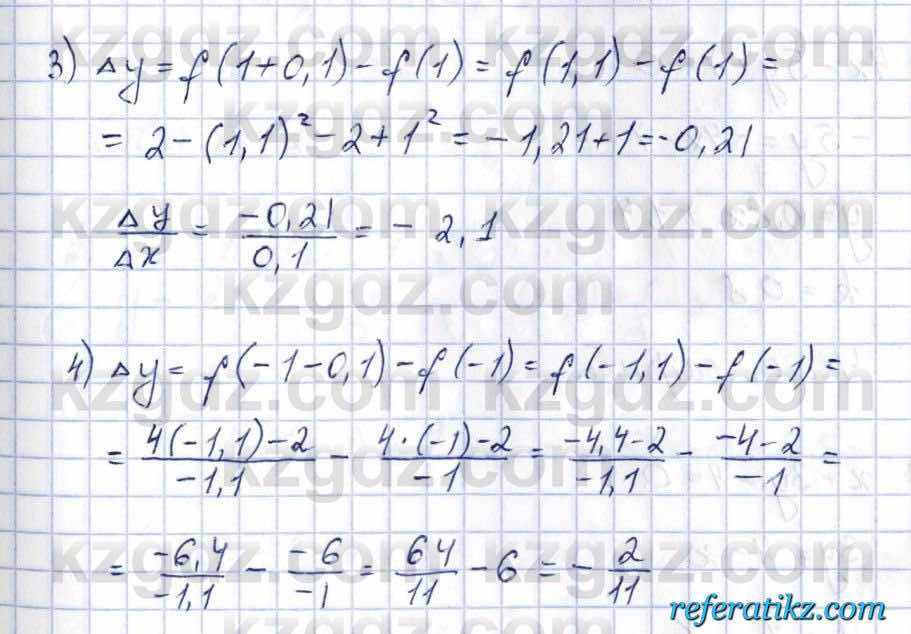 3) Δy = f(1+0,1) - f(1) = f(1,1) - f(1) =
= 2 - (1,1)² - 2 + 1² = -1,21 + 1 = -0,21
Δy/Δx = -0,21/0,1 = -2,1
4) Δy = f(-1-0,1) - f(-1) = f(-1,1) - f(-1) =
= (4(-1,1)-2)/(-1,1) - (4·(-1)-2)/(-1) = (-4,4-2)/(-1,1) - (-4-2)/(-1) =
= -6,4/-1,1 - -6/-1 = 64/11 - 6 = -2/11
kzgdz.com
referatikz.com